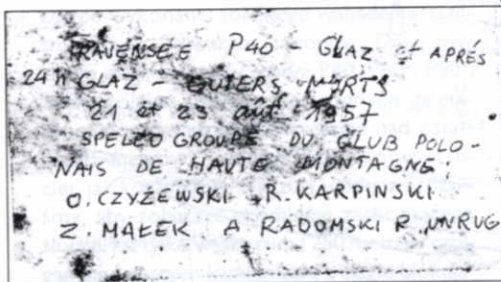 TRAVENSEE P40 - GLAZ et APRÉS
24 H GLAZ - GUIERS MORTS
21 et 23 août 1957
SPELEO GROUPE DU CLUB POLO-
NAIS DE HAUTE MONTAGNE:
O. CZYŻEWSKI R. KARPINSKI
Z. MAŁEK A RADOMSKI R. UNRUG